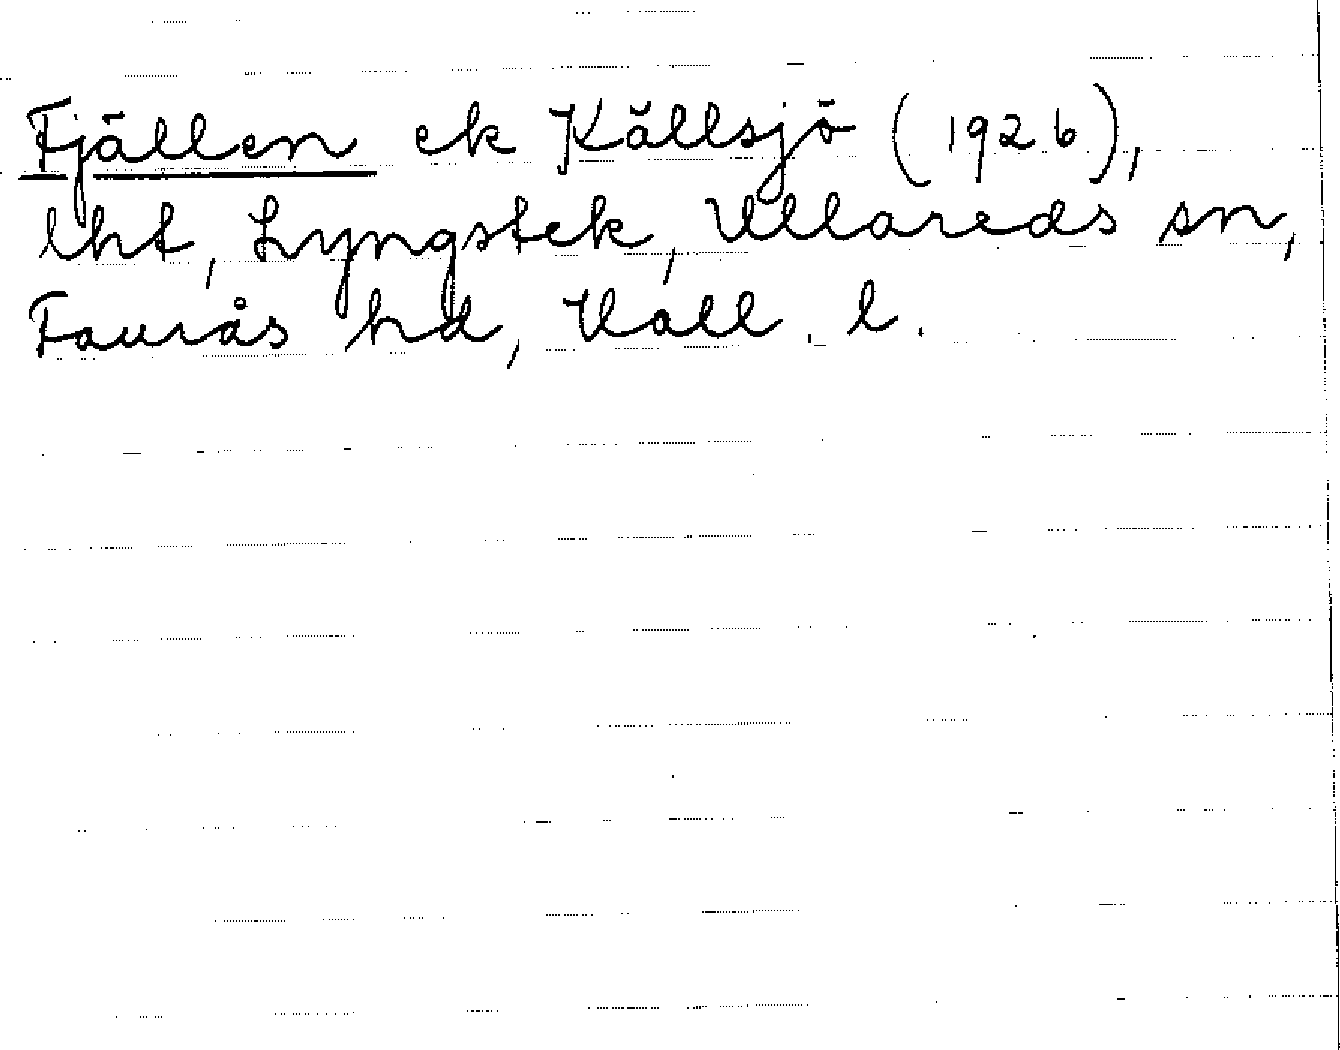 Fjällen ek Källsjö (1926),
lht, Lyngstek, Ullareds sn,
Faurås hd, Hall. l.